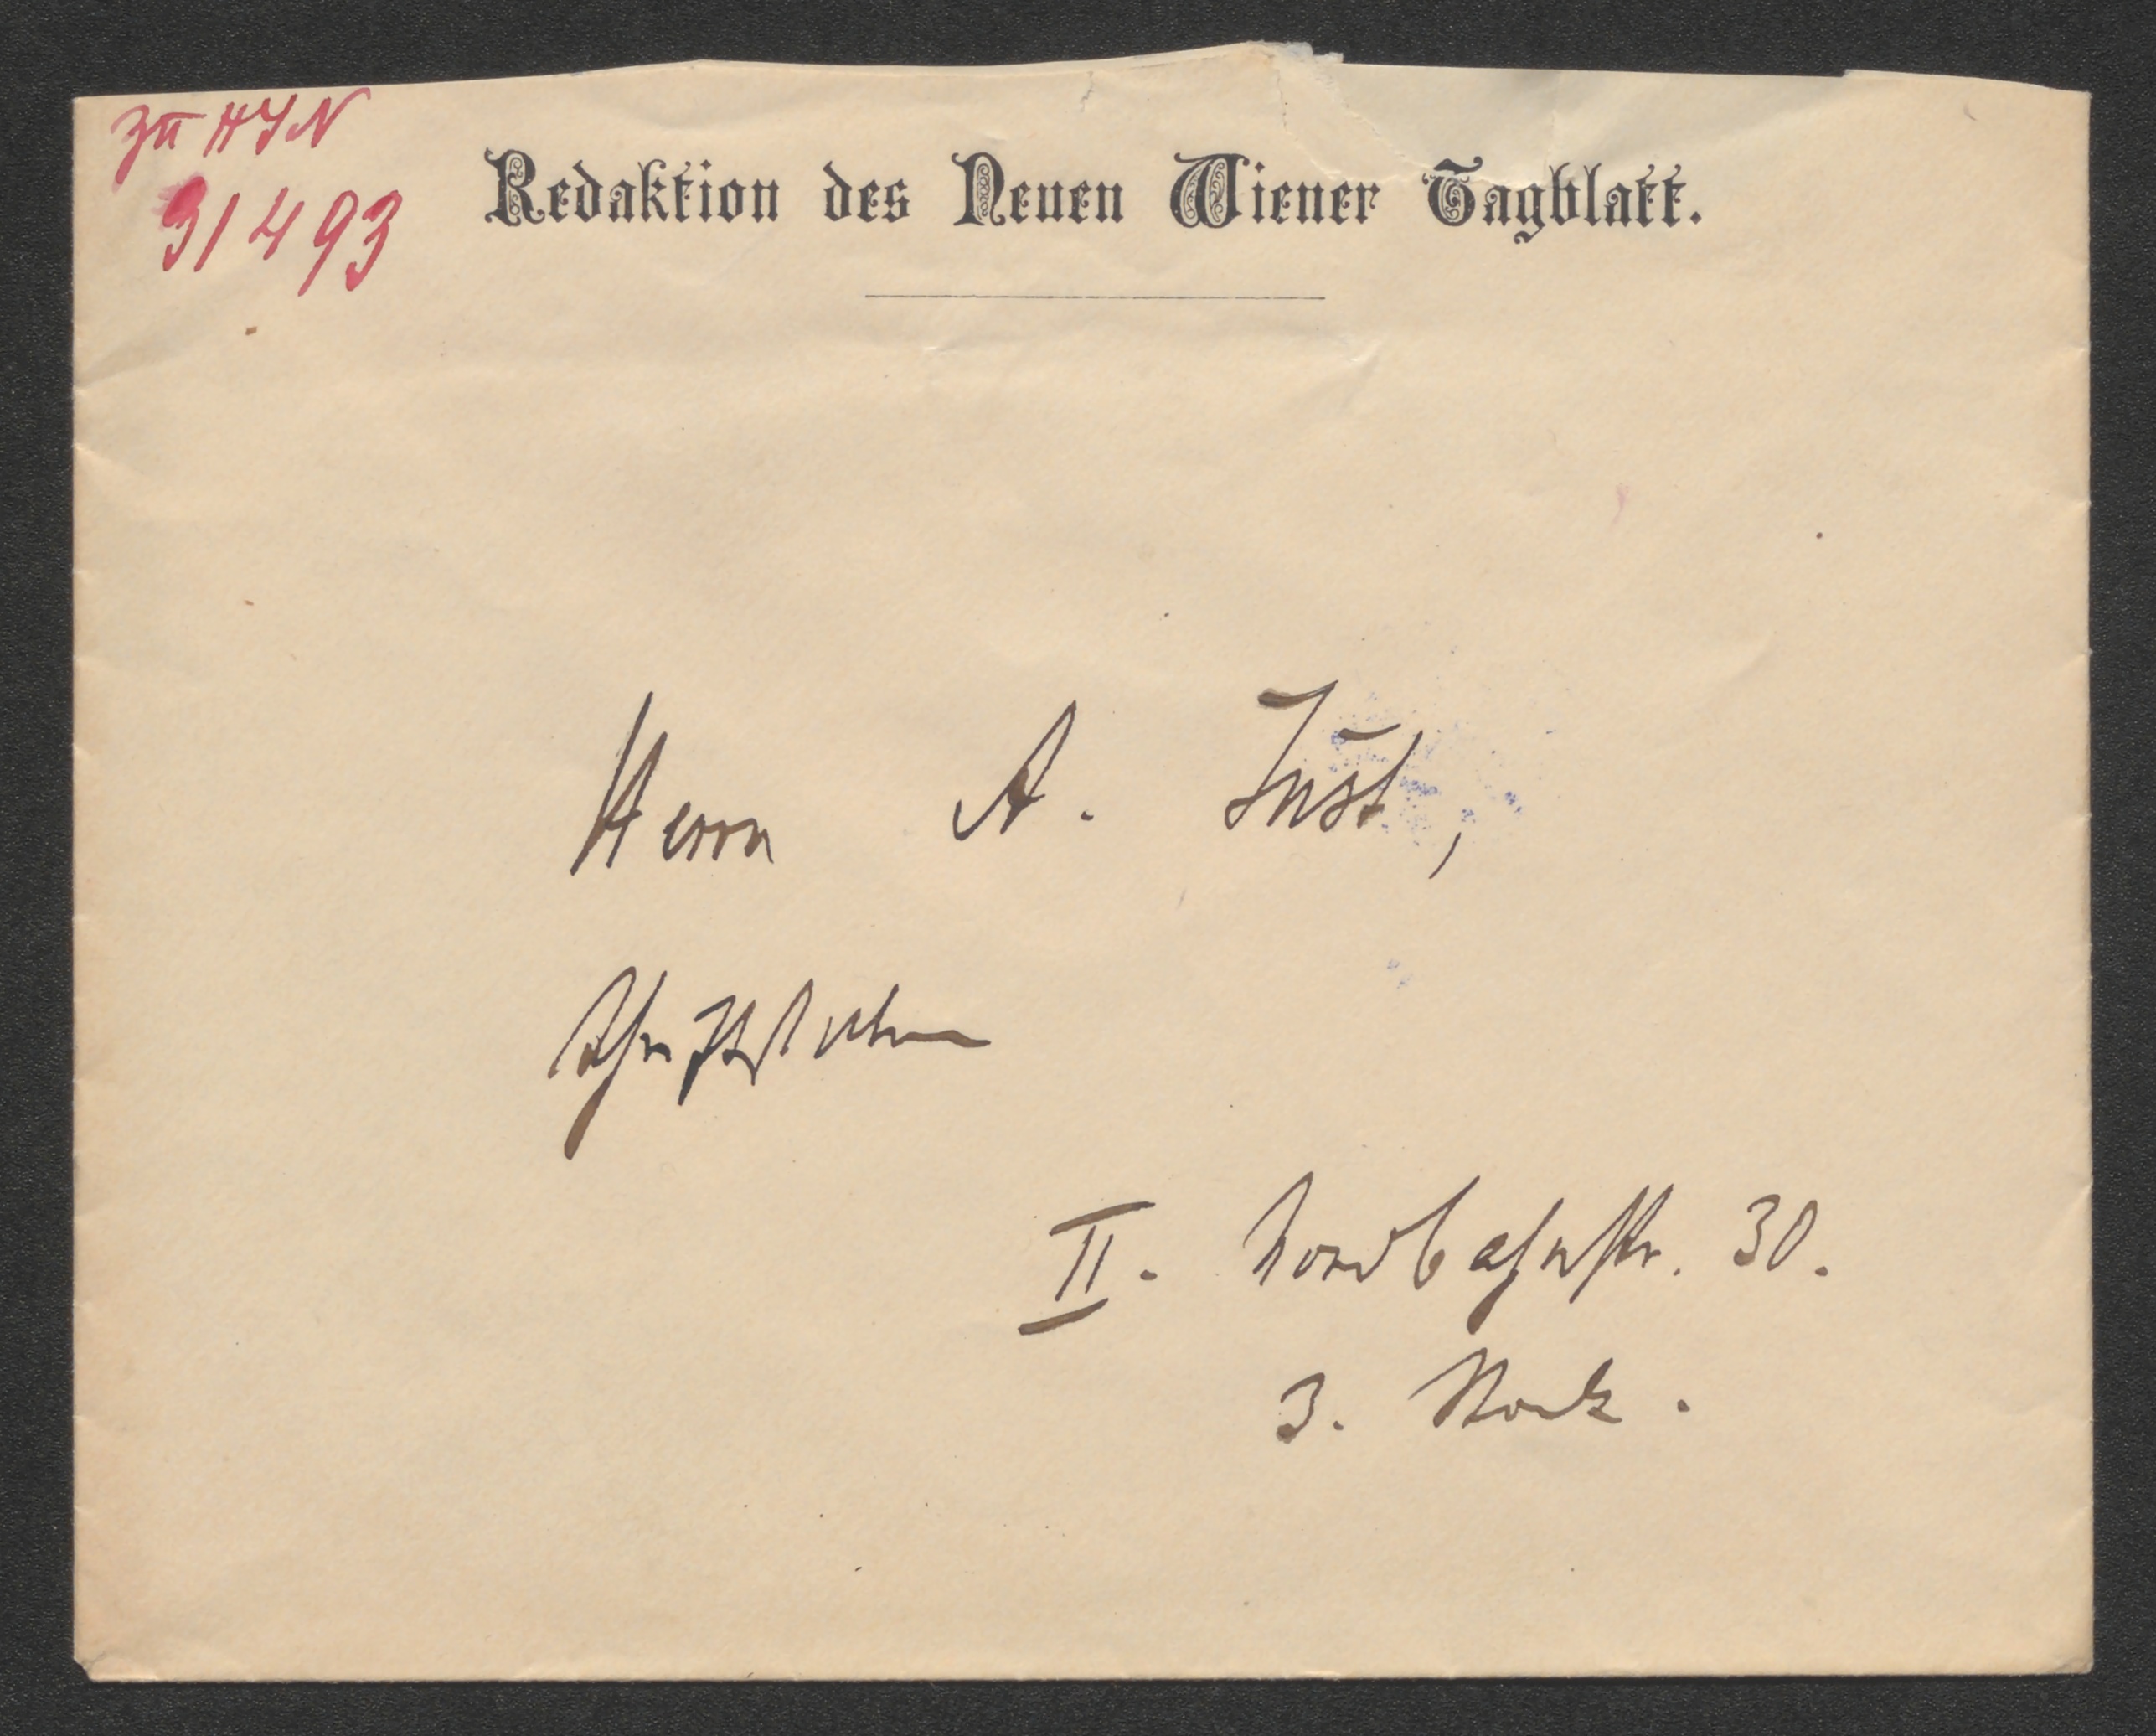 zu HIN
31493
Redaktion des Neuen Wiener Tagblatt.
Herrn A. Just,
Schriftsteller
II. Nordbahnstr. 30.
3. Stock.